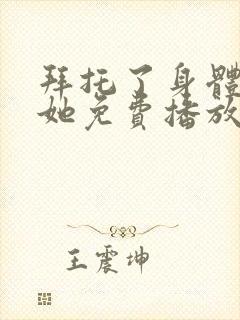 拜托了身體
她免費播放
王震坤